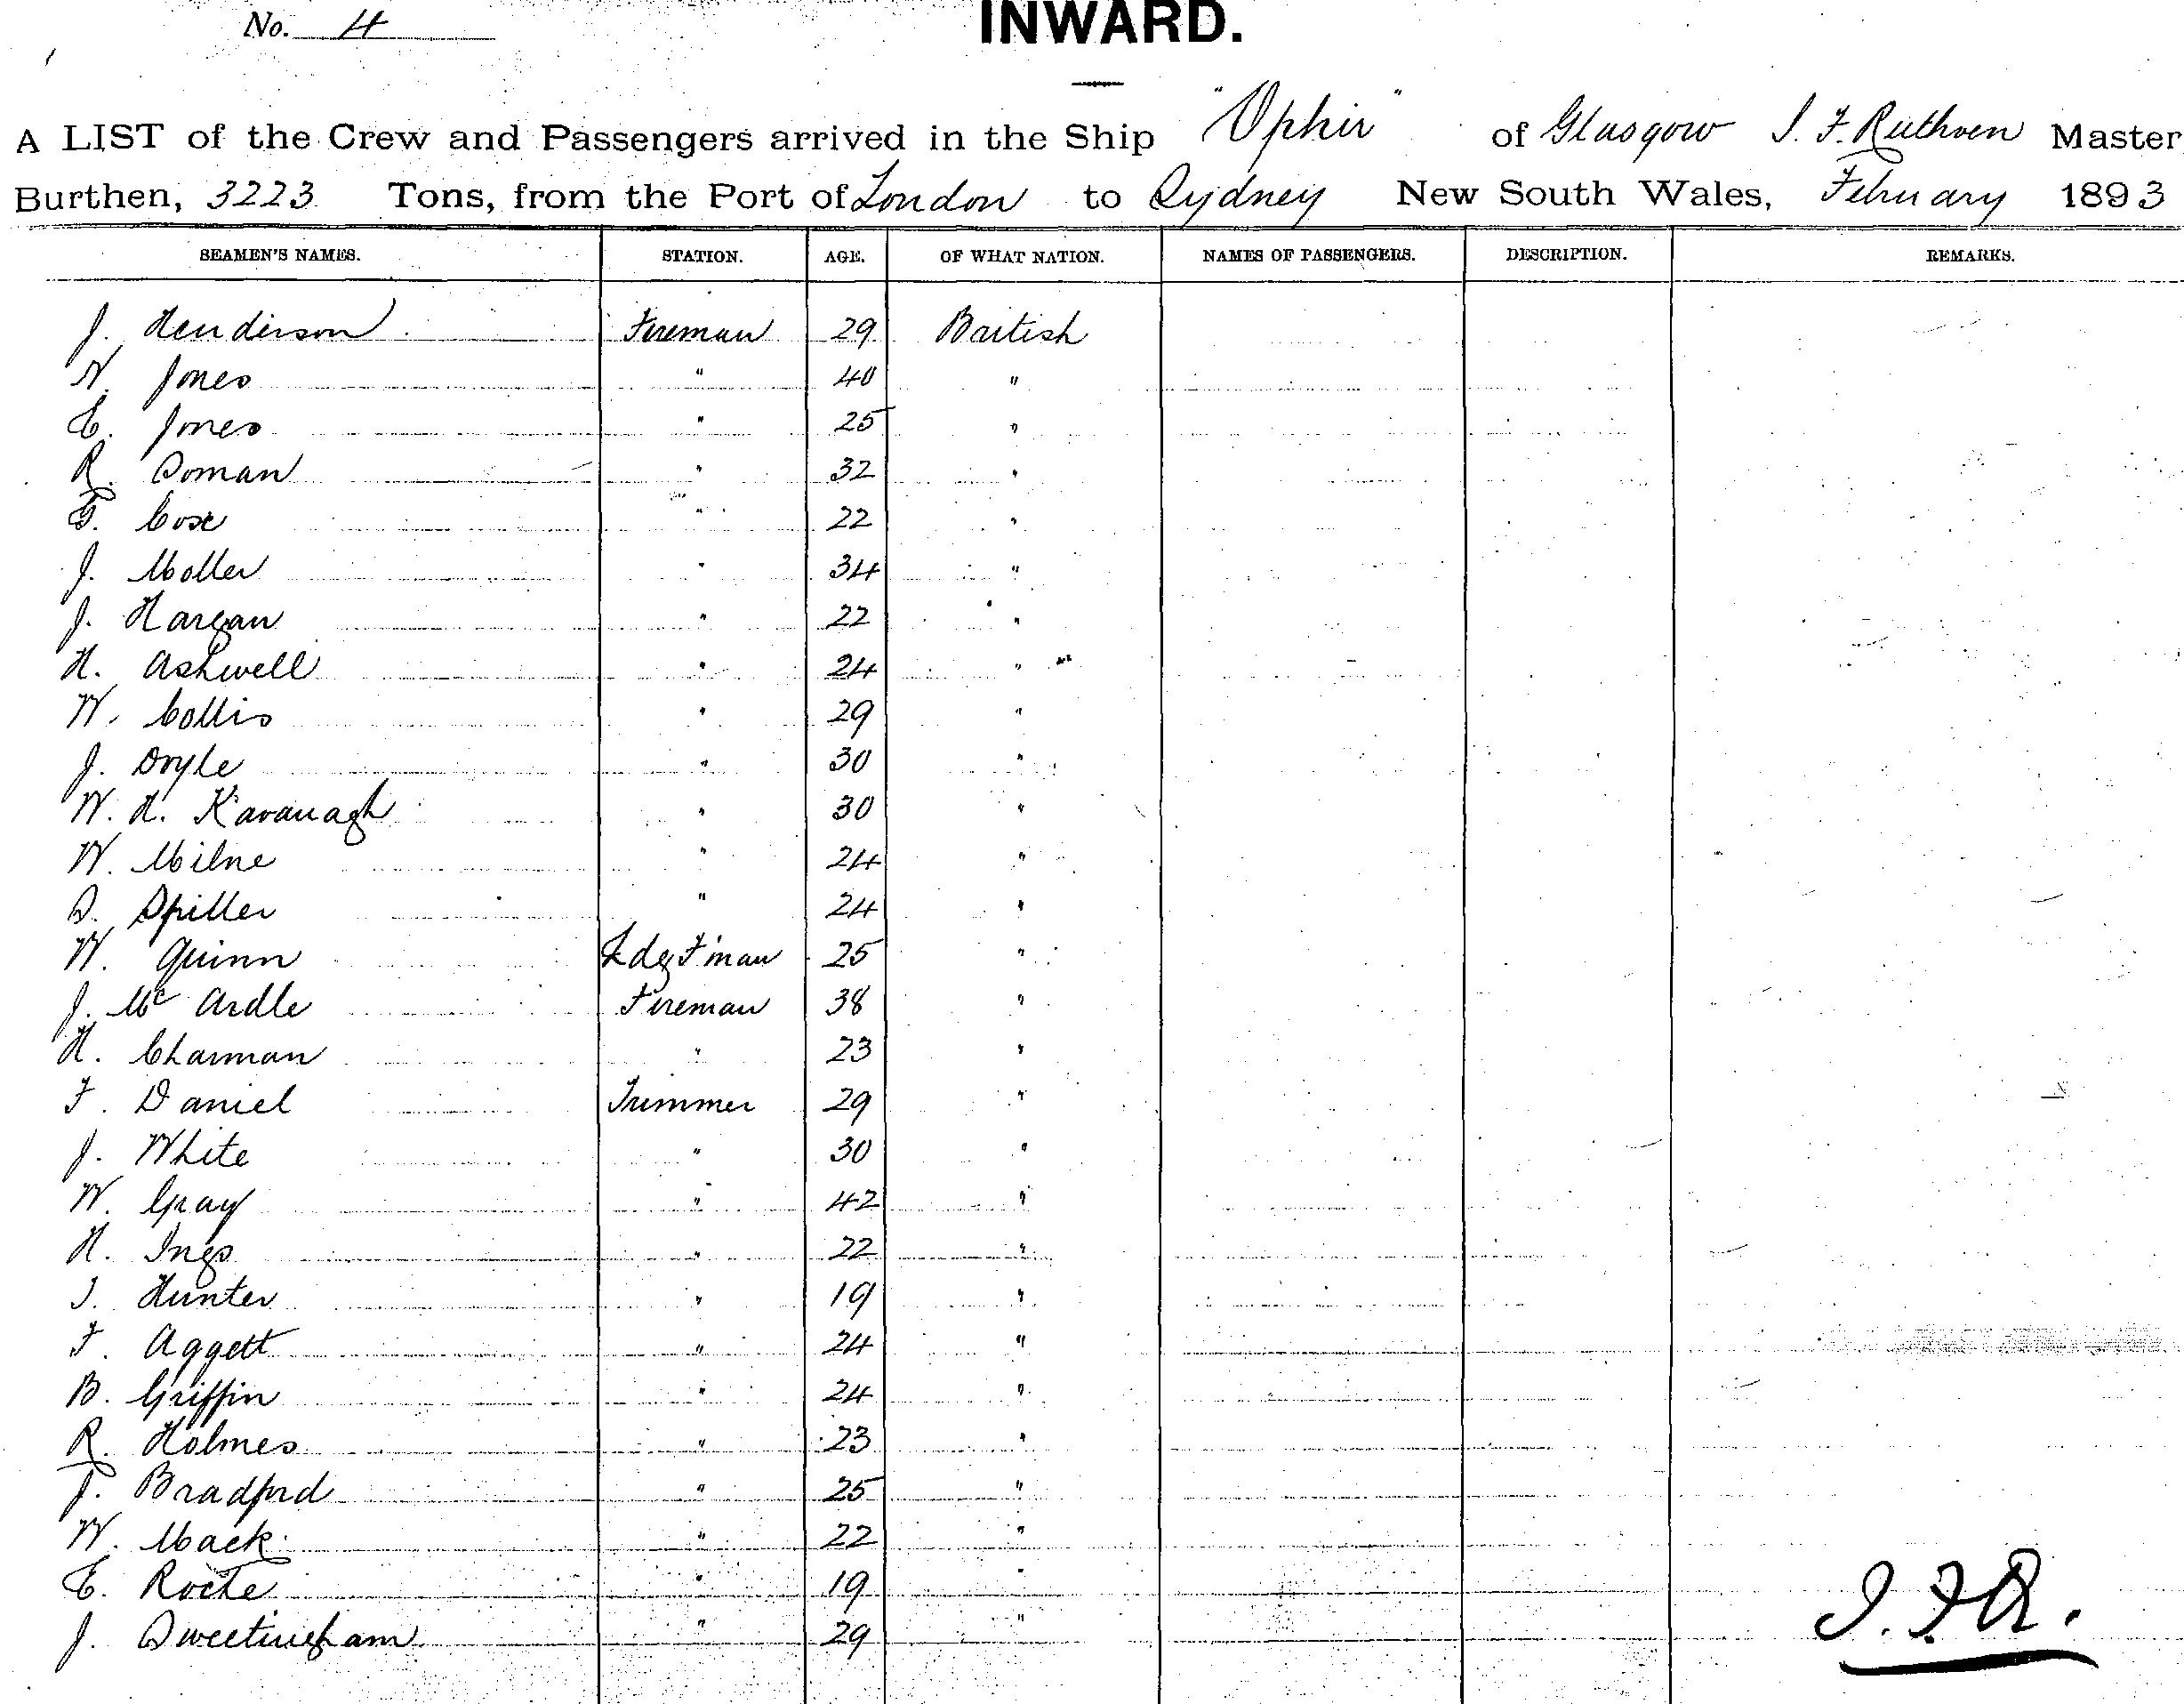 No. 4
INWARD.
A LIST of the Crew and Passengers arrived in the Ship "Ophir" of Glasgow J. F. Ruthven Master
Burthen, 3223 Tons, from the Port of London to Sydney New South Wales, February 1893
SEAMEN'S NAMES. STATION. AGE. OF WHAT NATION. NAMES OF PASSENGERS. DESCRIPTION. REMARKS.
J. Henderson Fireman 29 British
N. Jones " 40 "
E. Jones " 25 "
R. Doman " 32 "
G. Cose " 22 "
J. Moller " 34 "
J. Hargan " 22 "
H. Ashwell " 24 "
W. Collis " 29 "
J. Doyle " 30 "
W. H. Kavanagh " 30 "
W. Milne " 24 "
S. Spiller " 24 "
W. Quinn Ldg F'man 25 "
J. Mc Ardle Fireman 38 "
H. Charman " 23 "
F. Daniel Trimmer 29 "
J. White " 30 "
W. Gray " 42 "
H. Ings " 22 "
J. Hunter " 19 "
F. Aggett " 24 "
B. Griffin " 24 "
R. Holmes " 23 "
J. Bradford " 25 "
W. Mack " 22 "
E. Roche " 19 "
J. Sweetingham " 29 "
J. F. R.